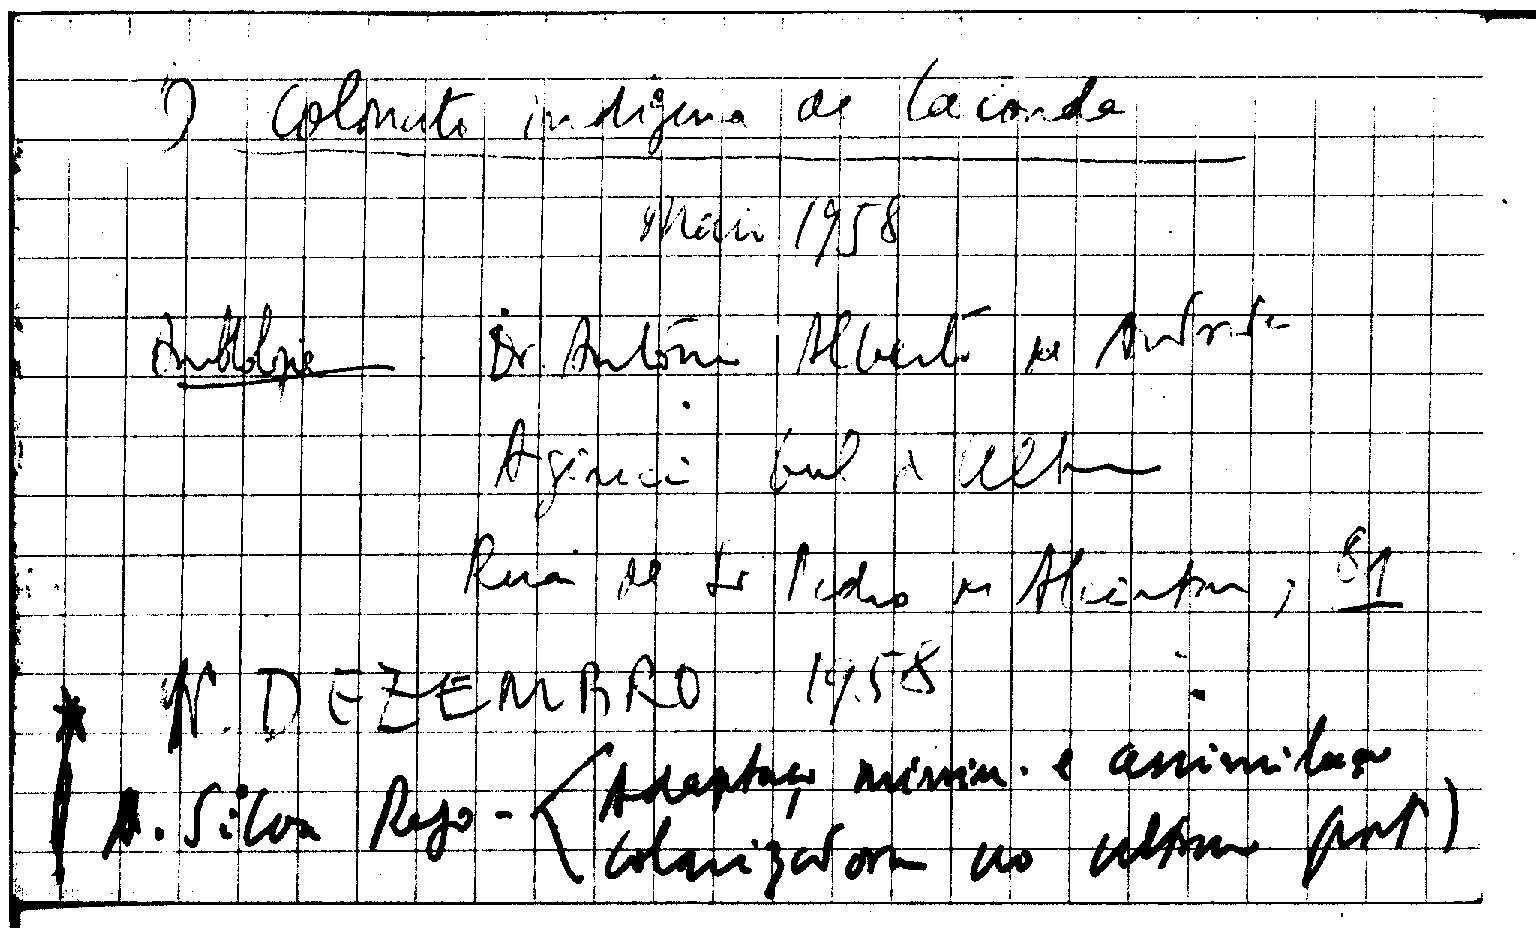 ) Colonato indígena de Caconda
Maio 1958
Antologia Dr. António Alberto de Andrade
Agência Geral do Ultramar
Rua de S. Pedro de Alcântara, 81
N. DEZEMBRO 1958
A. Silva Rego - (Adaptação mission. e assimilação
colonizadora no ultramar port)